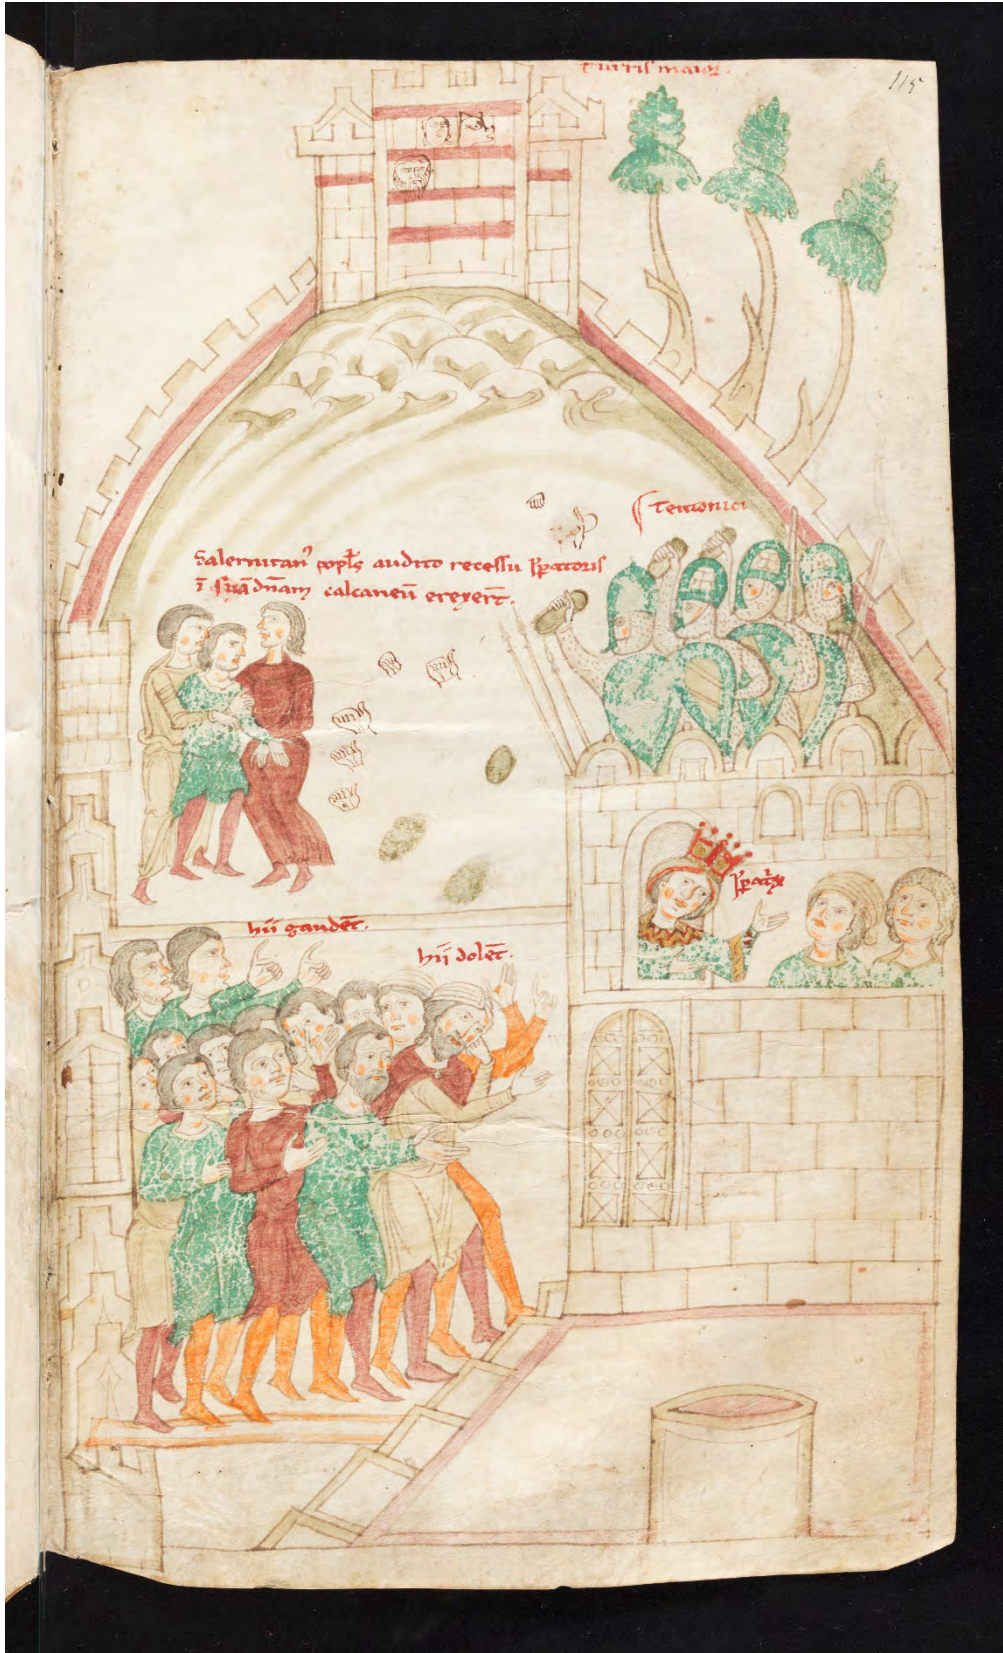 turris maior.
115
Teutonici
Salernitan' popl's audito recessu Ipatoris
ī suā dn̄am calcaneū erexer̄t.
Ipat'x
hii gaudēt.
hii dolēt.